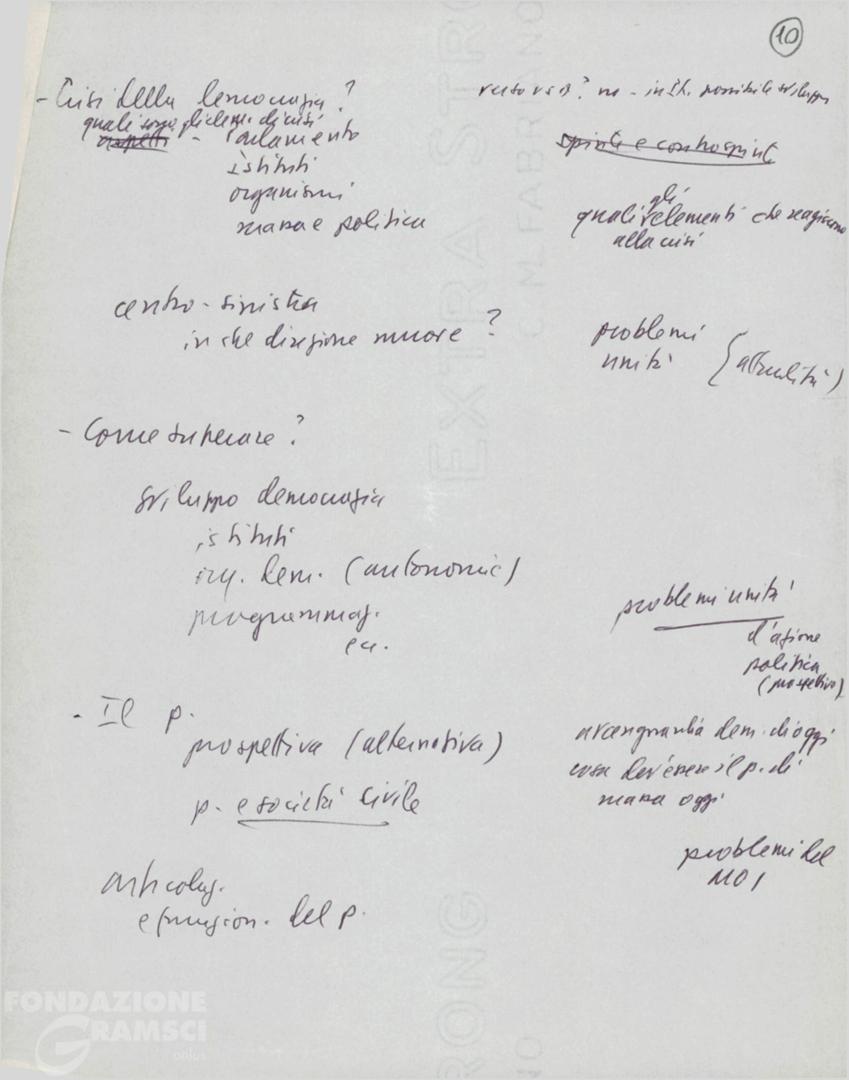 10
- Crisi della democrazia?
quali sono gli elem. di crisi
aspetti - Parlamento
istituti
organismi
massa e politica
centro-sinistra
in che direzione muove?
- Come superare?
sviluppo democrazia
istituti
org. dem. (autonomie)
programmaz.
ecc.
- Il p.
prospettiva (alternativa)
p. e società civile
articolaz.
e funzion. del p.
no - possibile sviluppo
spinte e controspinte
gli
quali elementi che reagiscono
alla crisi
problemi
unità (attualità)
problemi unità
d'azione
politica
(prospettiva)
avanguardia dem. di oggi
cosa dev'essere il p. di
massa oggi
problemi del
MOI
EXTRA STRONG
C.M. FABRIANO
FONDAZIONE
GRAMSCI
onlus